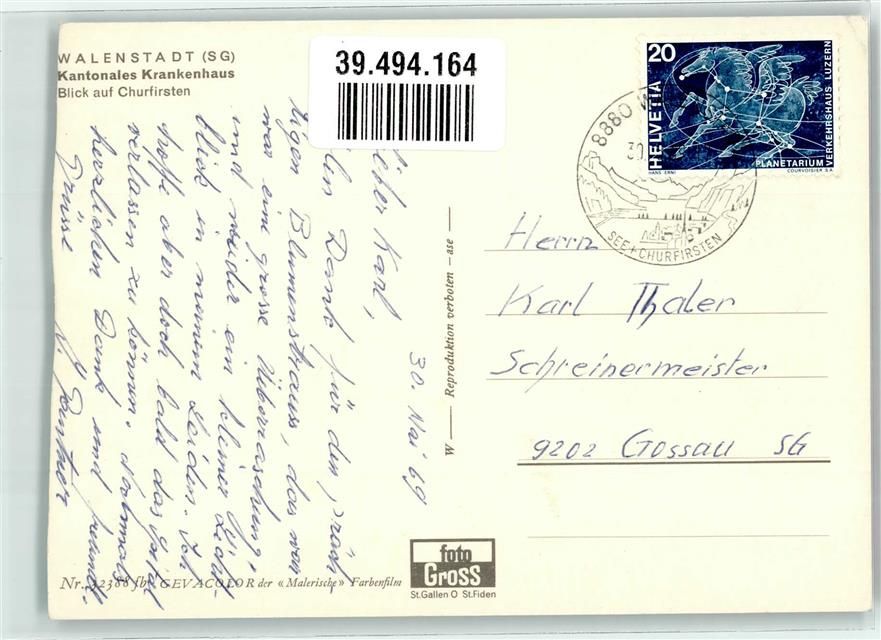 WALENSTADT (SG)
Kantonales Krankenhaus
Blick auf Churfirsten
39.494.164
20
HELVETIA
PLANETARIUM
VERKEHRSHAUS LUZERN
HANS ERNI
COURVOISIER S.A.
8880
30.
SEE+CHURFIRSTEN
30. Mai 69
Lieber Karl,
Dank für den präch-
tigen Blumenstrauss, das war
war eine grosse Überraschung,
und wieder ein kleiner Licht-
blick in meinem Leiden. Ich
hoffe aber doch bald das Spital
verlassen zu können. Nochmals
herzlichen Dank und freundl.
Grüsse
W — Reproduktion verboten — ase —
Herrn
Karl Thaler
Schreinermeister
9202 Gossau SG
Nr. 32388 fb. GEVACOLOR der «Malerische» Farbenfilm
foto
Gross
St.Gallen O St.Fiden